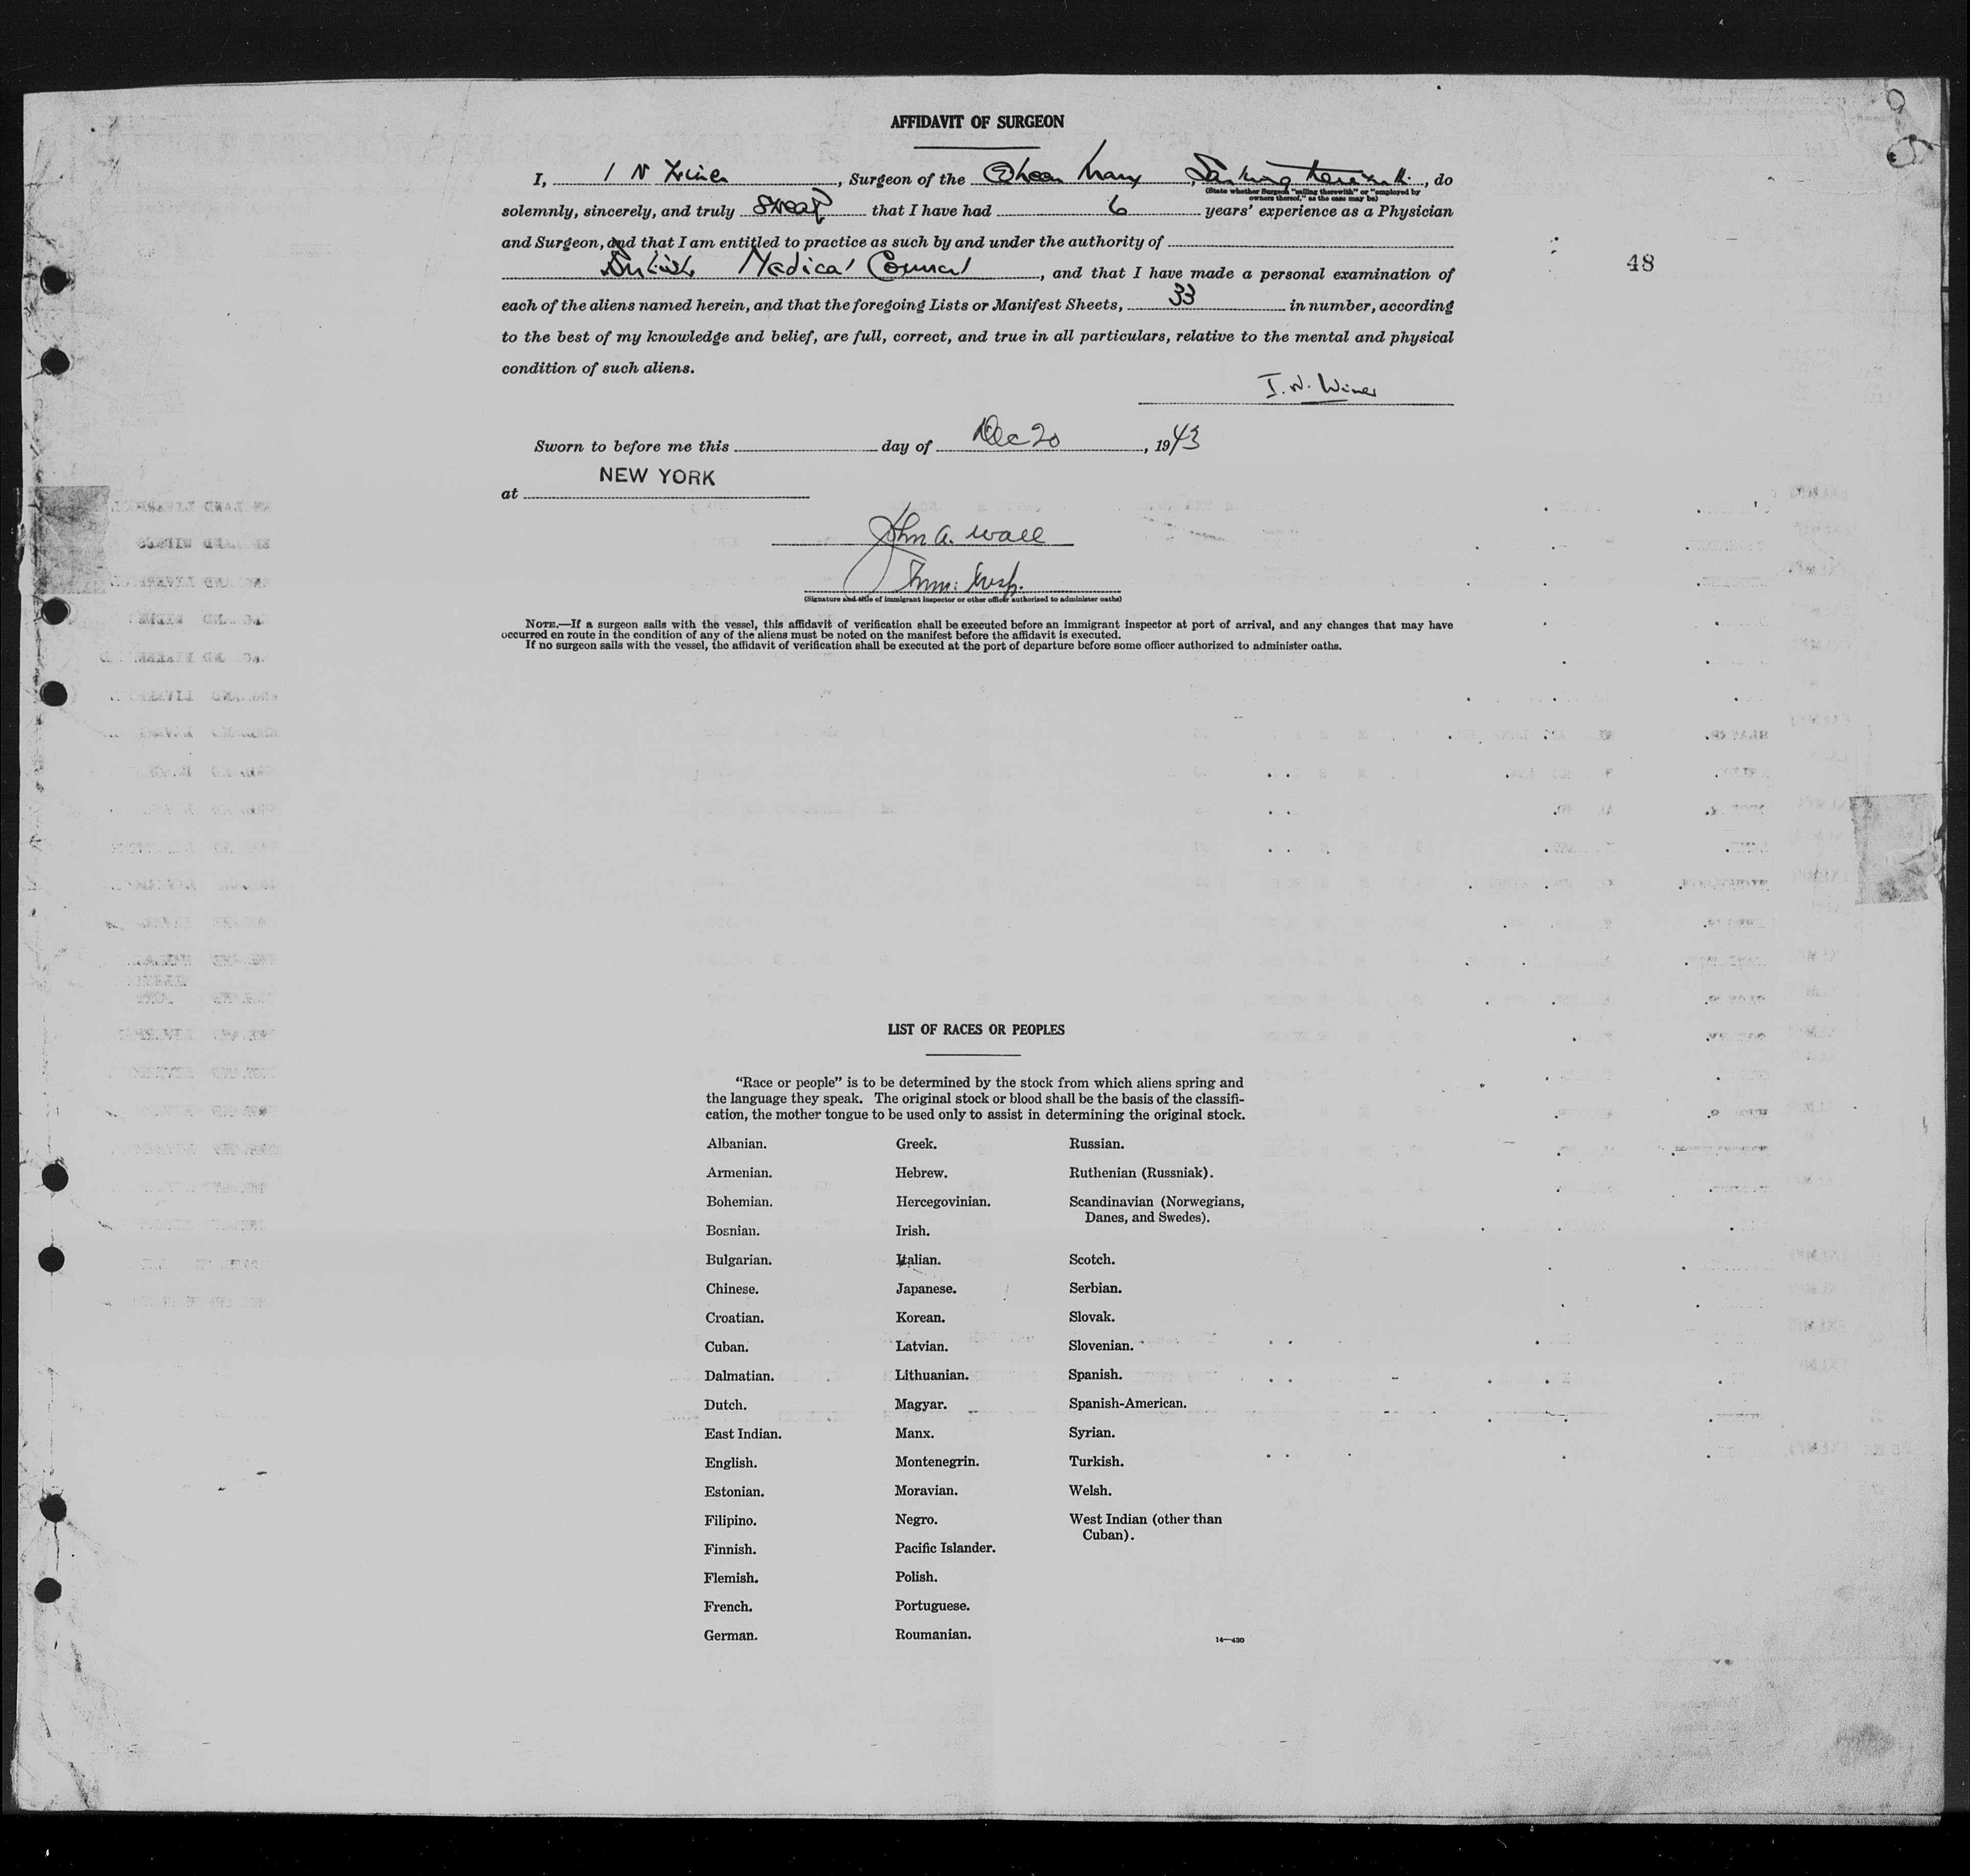 AFFIDAVIT OF SURGEON
I, I N Winer, Surgeon of the Queen Mary, Sailing therewith, do
(State whether Surgeon "sailing therewith" or "employed by
owners thereof," as the case may be)
solemnly, sincerely, and truly swear that I have had 6 years' experience as a Physician
and Surgeon, and that I am entitled to practice as such by and under the authority of
British Medical Council, and that I have made a personal examination of
48
each of the aliens named herein, and that the foregoing Lists or Manifest Sheets, 33 in number, according
to the best of my knowledge and belief, are full, correct, and true in all particulars, relative to the mental and physical
condition of such aliens.
I. N. Winer
Sworn to before me this day of Dec 20, 1943
at NEW YORK
John A. Wall
Imm. Insp.
(Signature and title of immigrant inspector or other officer authorized to administer oaths)
NOTE.—If a surgeon sails with the vessel, this affidavit of verification shall be executed before an immigrant inspector at port of arrival, and any changes that may have
occurred en route in the condition of any of the aliens must be noted on the manifest before the affidavit is executed.
If no surgeon sails with the vessel, the affidavit of verification shall be executed at the port of departure before some officer authorized to administer oaths.
LIST OF RACES OR PEOPLES
"Race or people" is to be determined by the stock from which aliens spring and
the language they speak. The original stock or blood shall be the basis of the classifi-
cation, the mother tongue to be used only to assist in determining the original stock.
Albanian.
Armenian.
Bohemian.
Bosnian.
Bulgarian.
Chinese.
Croatian.
Cuban.
Dalmatian.
Dutch.
East Indian.
English.
Estonian.
Filipino.
Finnish.
Flemish.
French.
German.
Greek.
Hebrew.
Hercegovinian.
Irish.
Italian.
Japanese.
Korean.
Latvian.
Lithuanian.
Magyar.
Manx.
Montenegrin.
Moravian.
Negro.
Pacific Islander.
Polish.
Portuguese.
Roumanian.
Russian.
Ruthenian (Russniak).
Scandinavian (Norwegians,
Danes, and Swedes).
Scotch.
Serbian.
Slovak.
Slovenian.
Spanish.
Spanish-American.
Syrian.
Turkish.
Welsh.
West Indian (other than
Cuban).
14—430